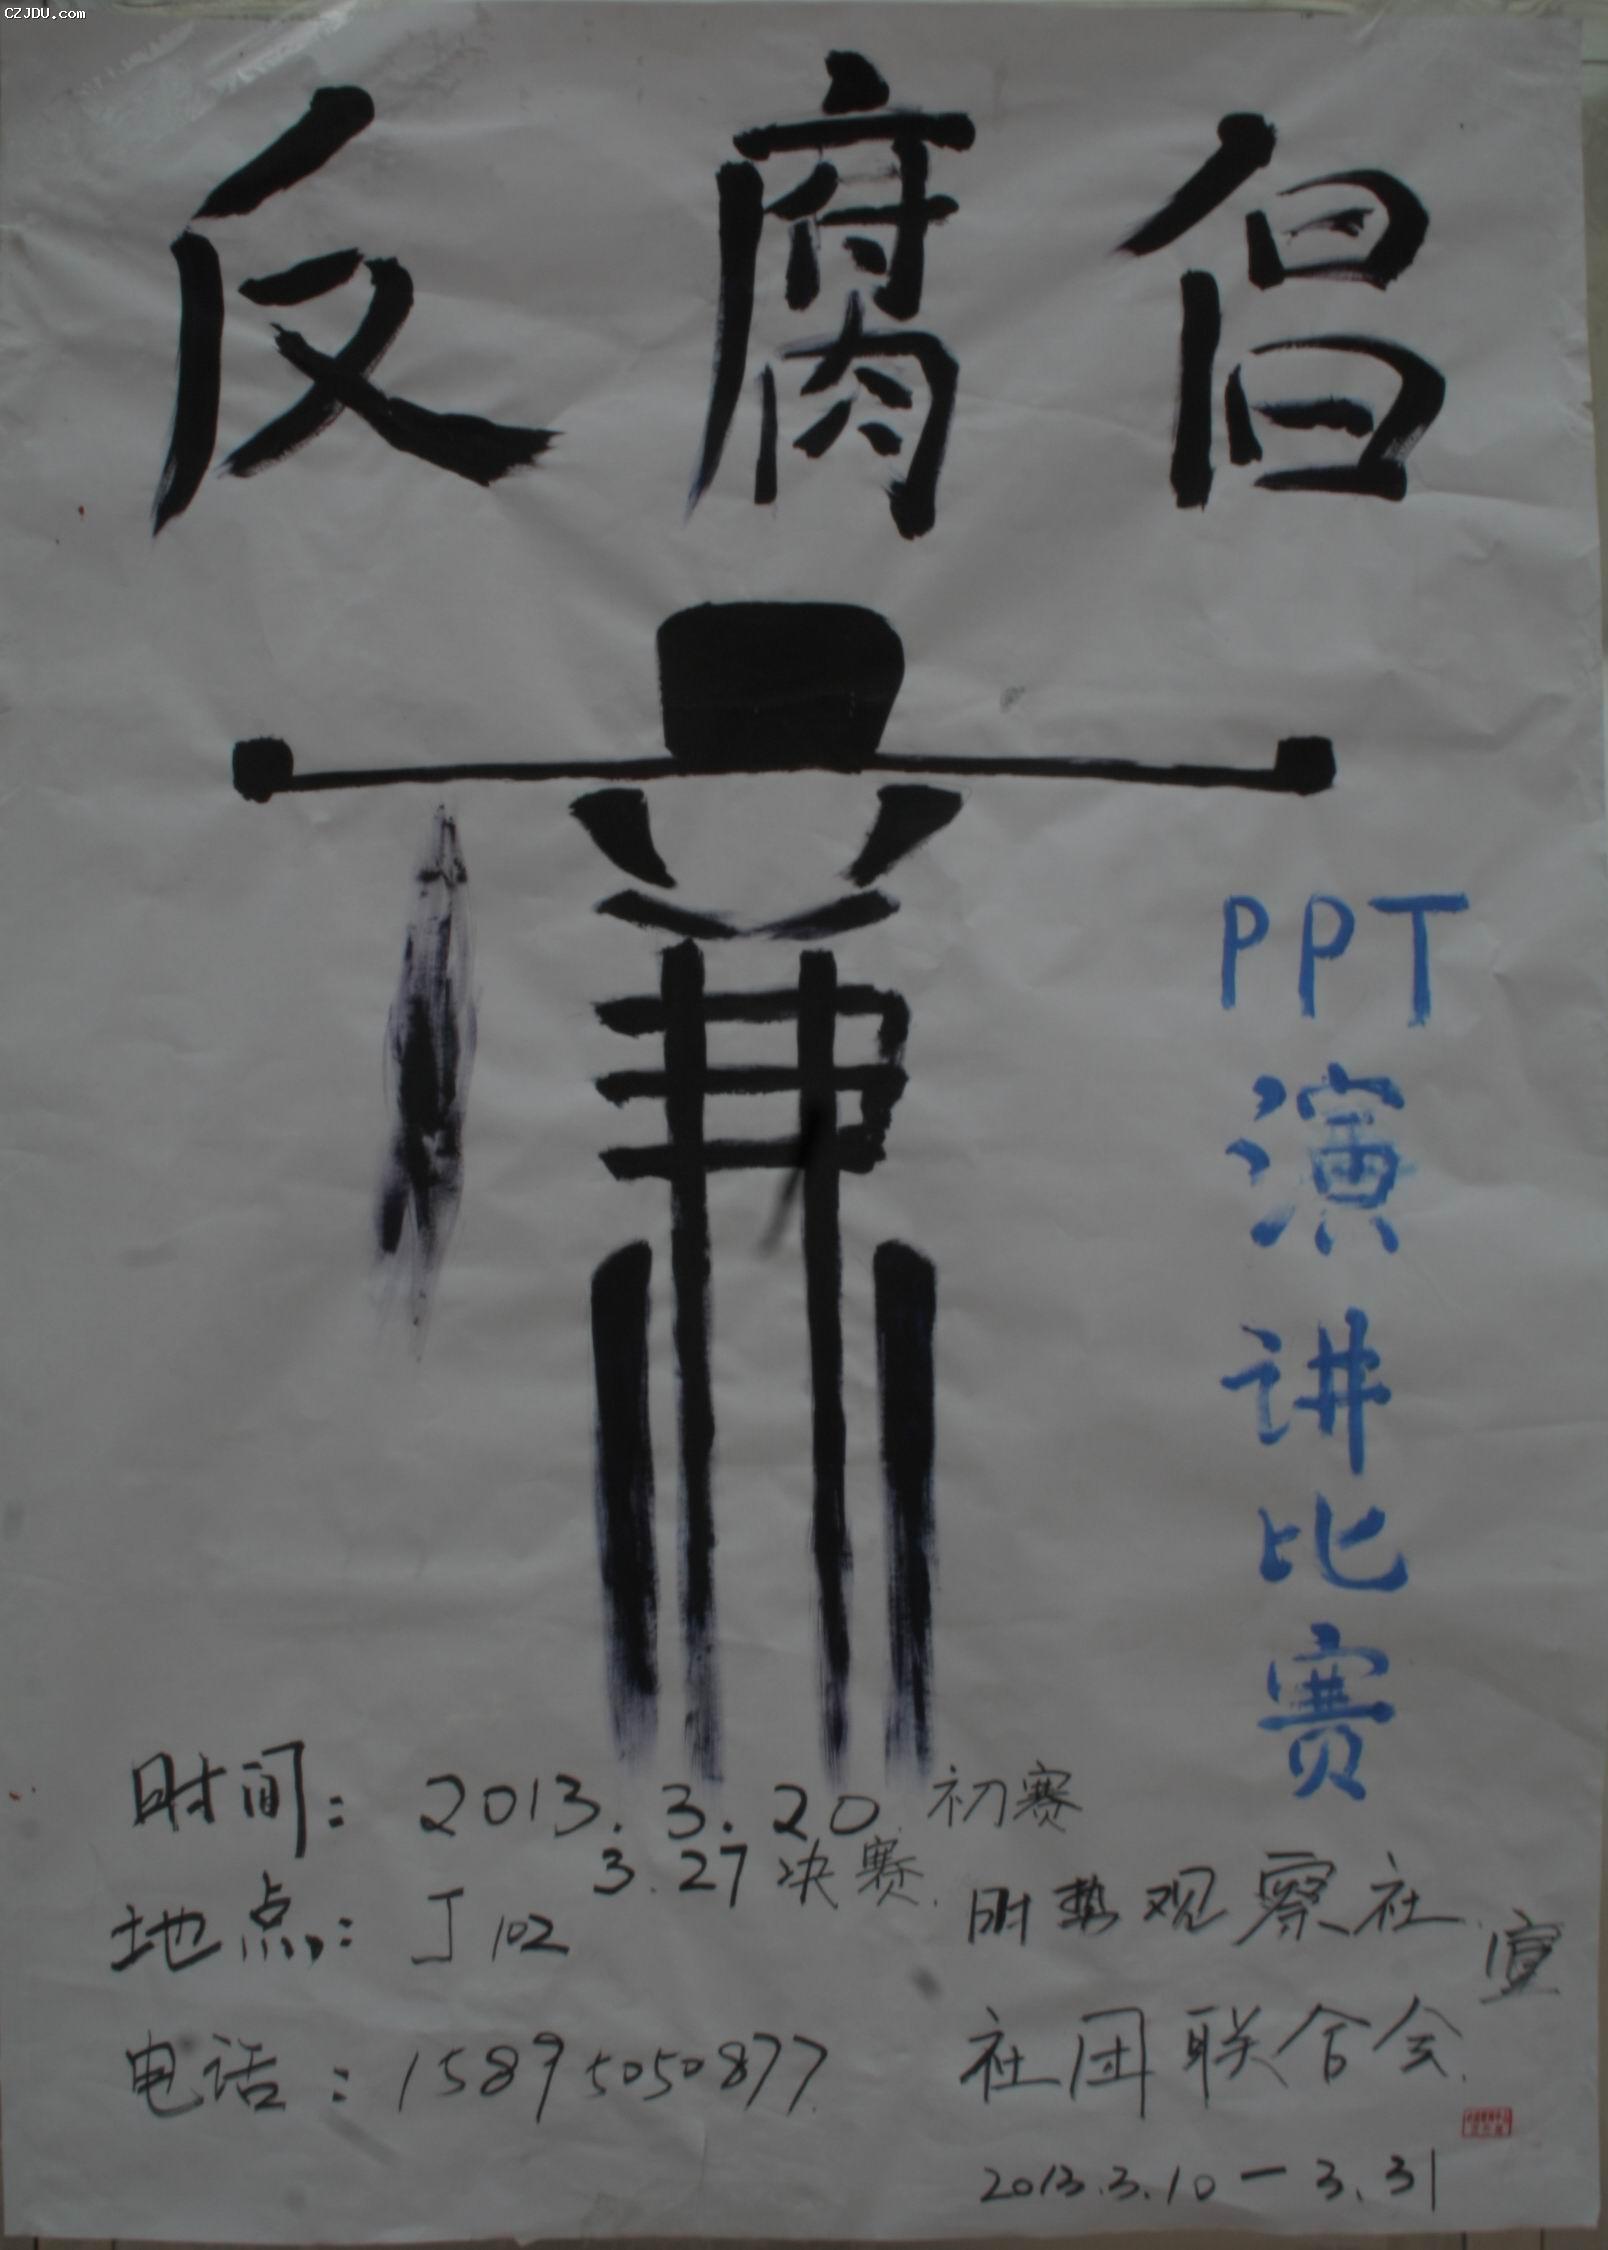 CZJDU.com
反腐倡
廉
PPT
演
讲
比
赛
时间: 2013.3.20 初赛
3.27 决赛.
地点: J102
电话: 15895050877.
时势观察社.
社团联合会.
宣
2013.3.10-3.31